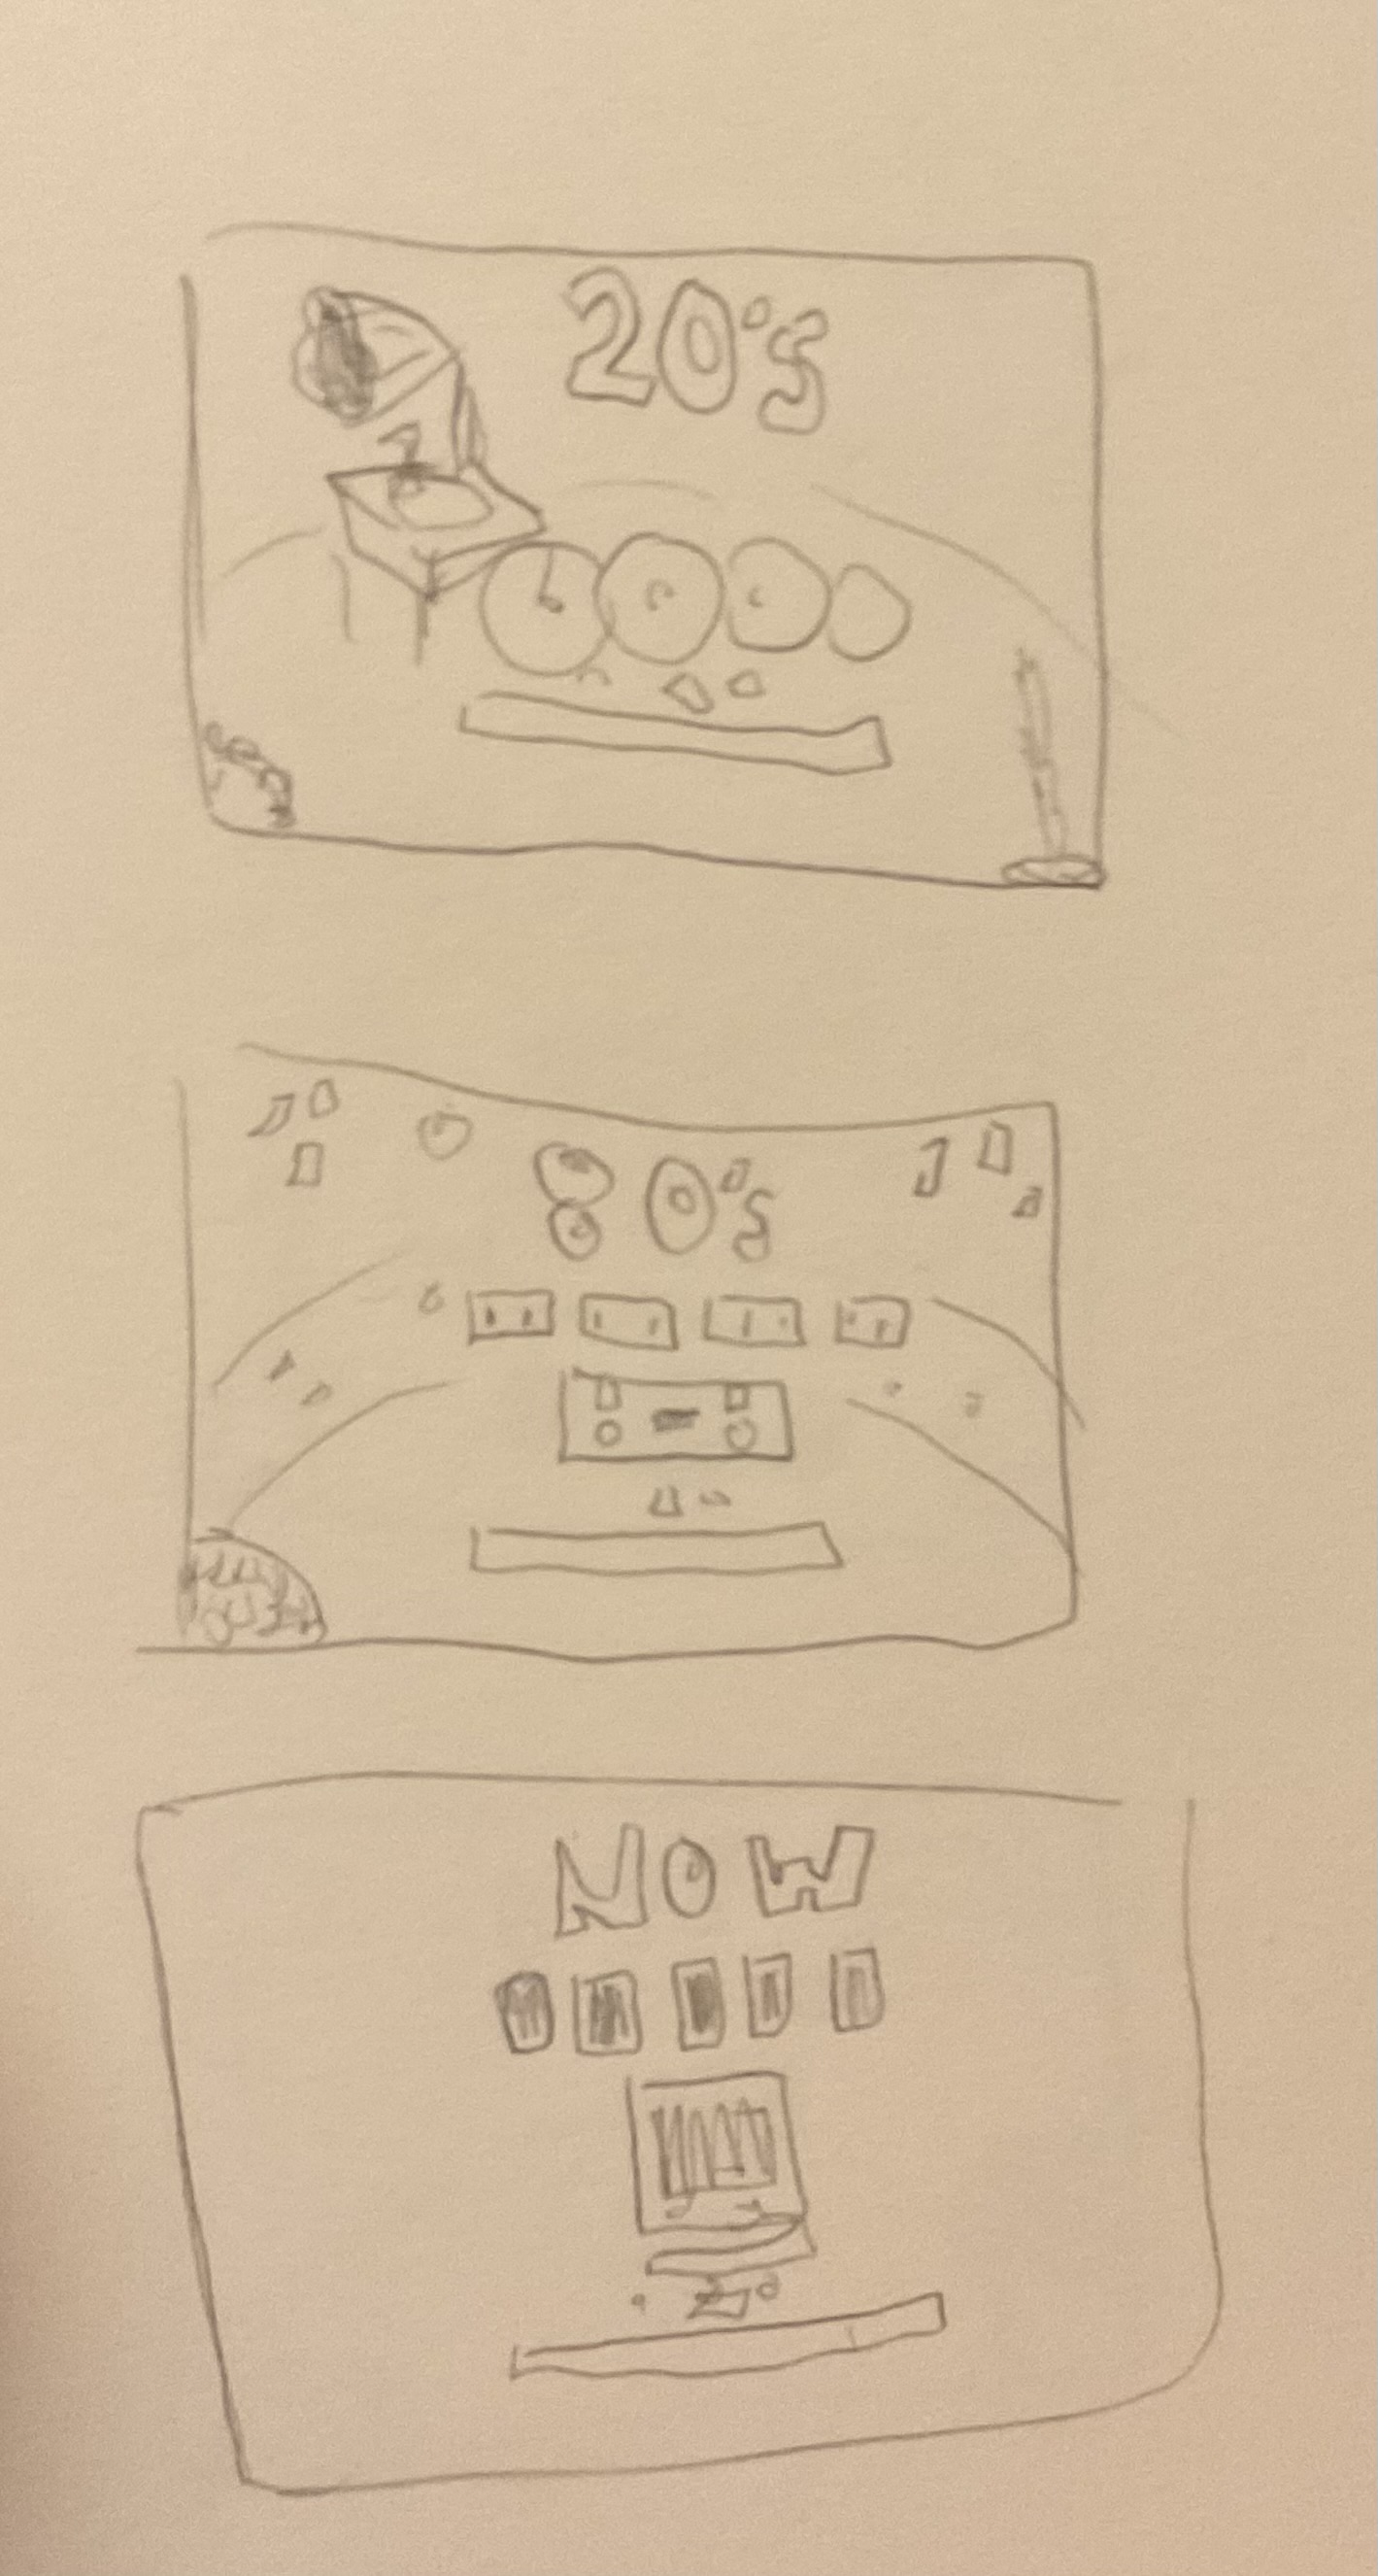 20's
80's
NOW